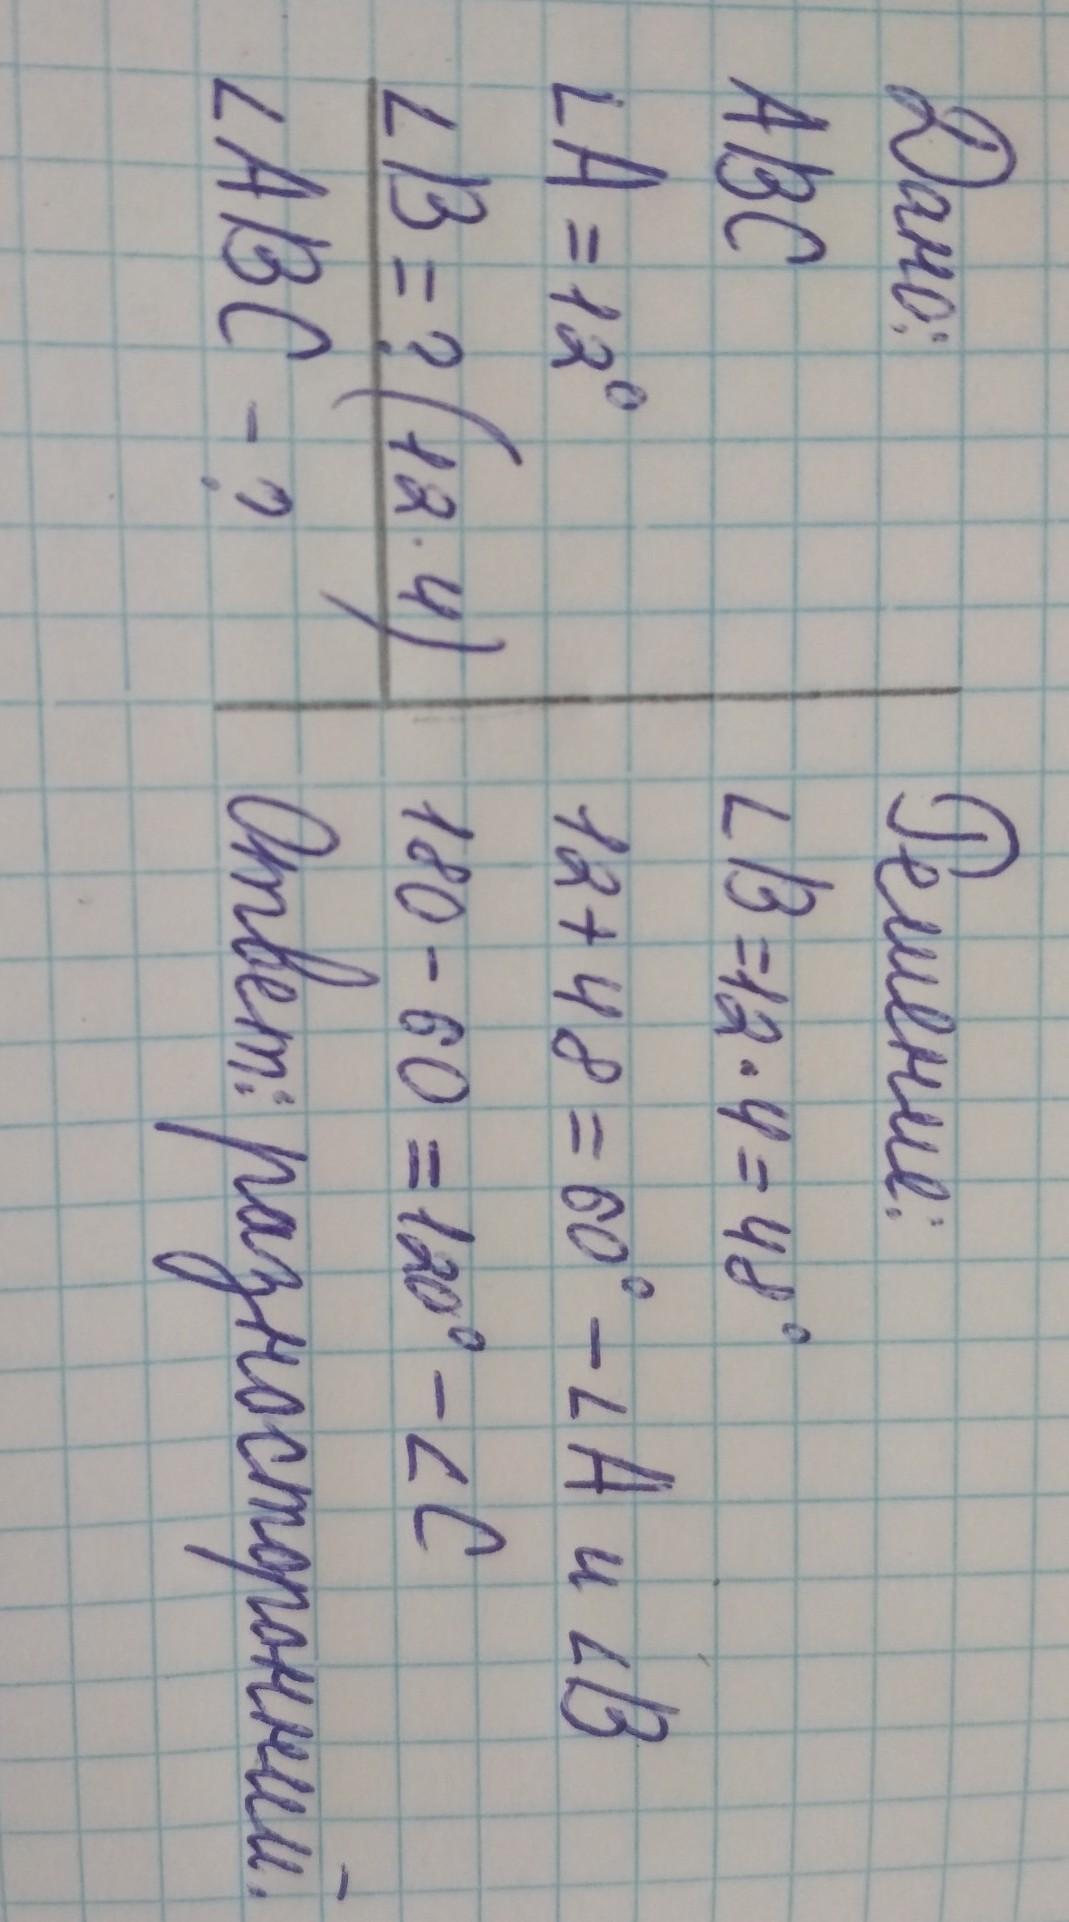 Дано:
ABC
∠A = 12°
∠B = ? (12 · 4)
∠ABC - ?
Решение:
∠B = 12 · 4 = 48°
12 + 48 = 60° - ∠A и ∠B
180 - 60 = 120° - ∠C
Ответ: разносторонний.